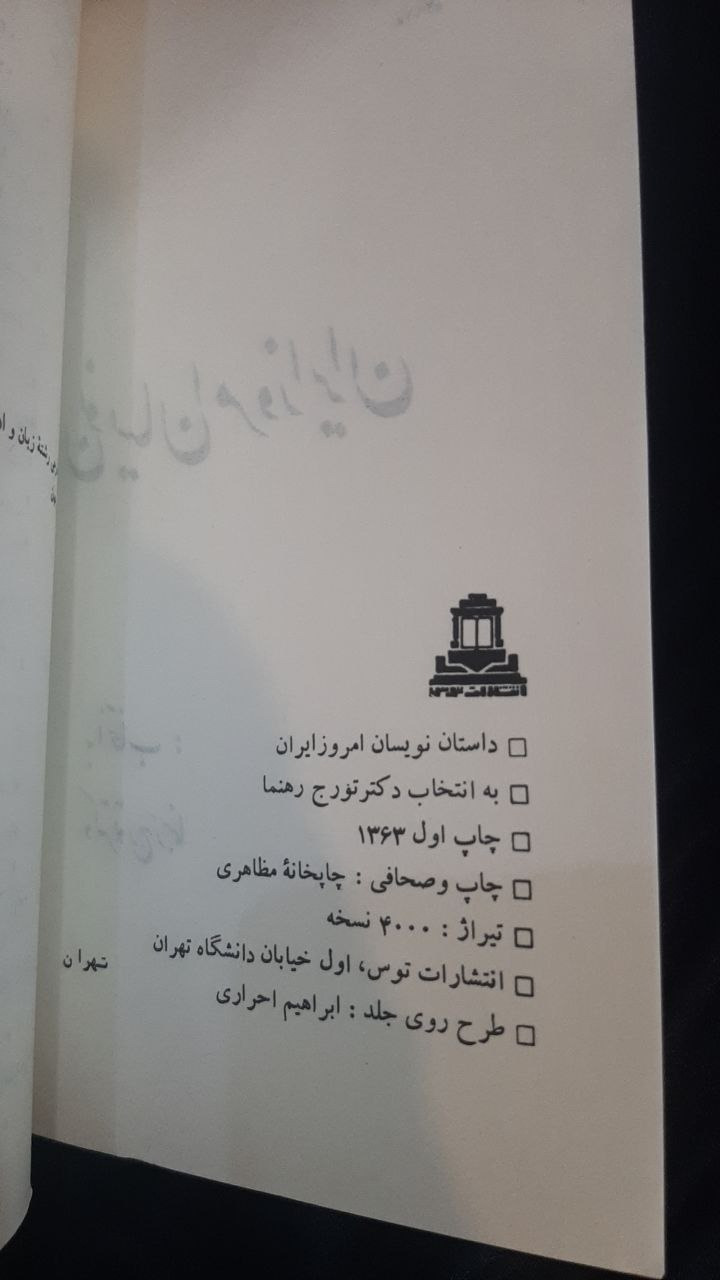 انتشارات توس
داستان نویسان امروز ایران
به انتخاب دکتر تورج رهنما
چاپ اول ۱۳۶۳
چاپ و صحافی : چاپخانهٔ مظاهری
تیراژ : ۴۰۰۰ نسخه
انتشارات توس، اول خیابان دانشگاه تهران تهران
طرح روی جلد : ابراهیم احراری
رشتهٔ زبان و